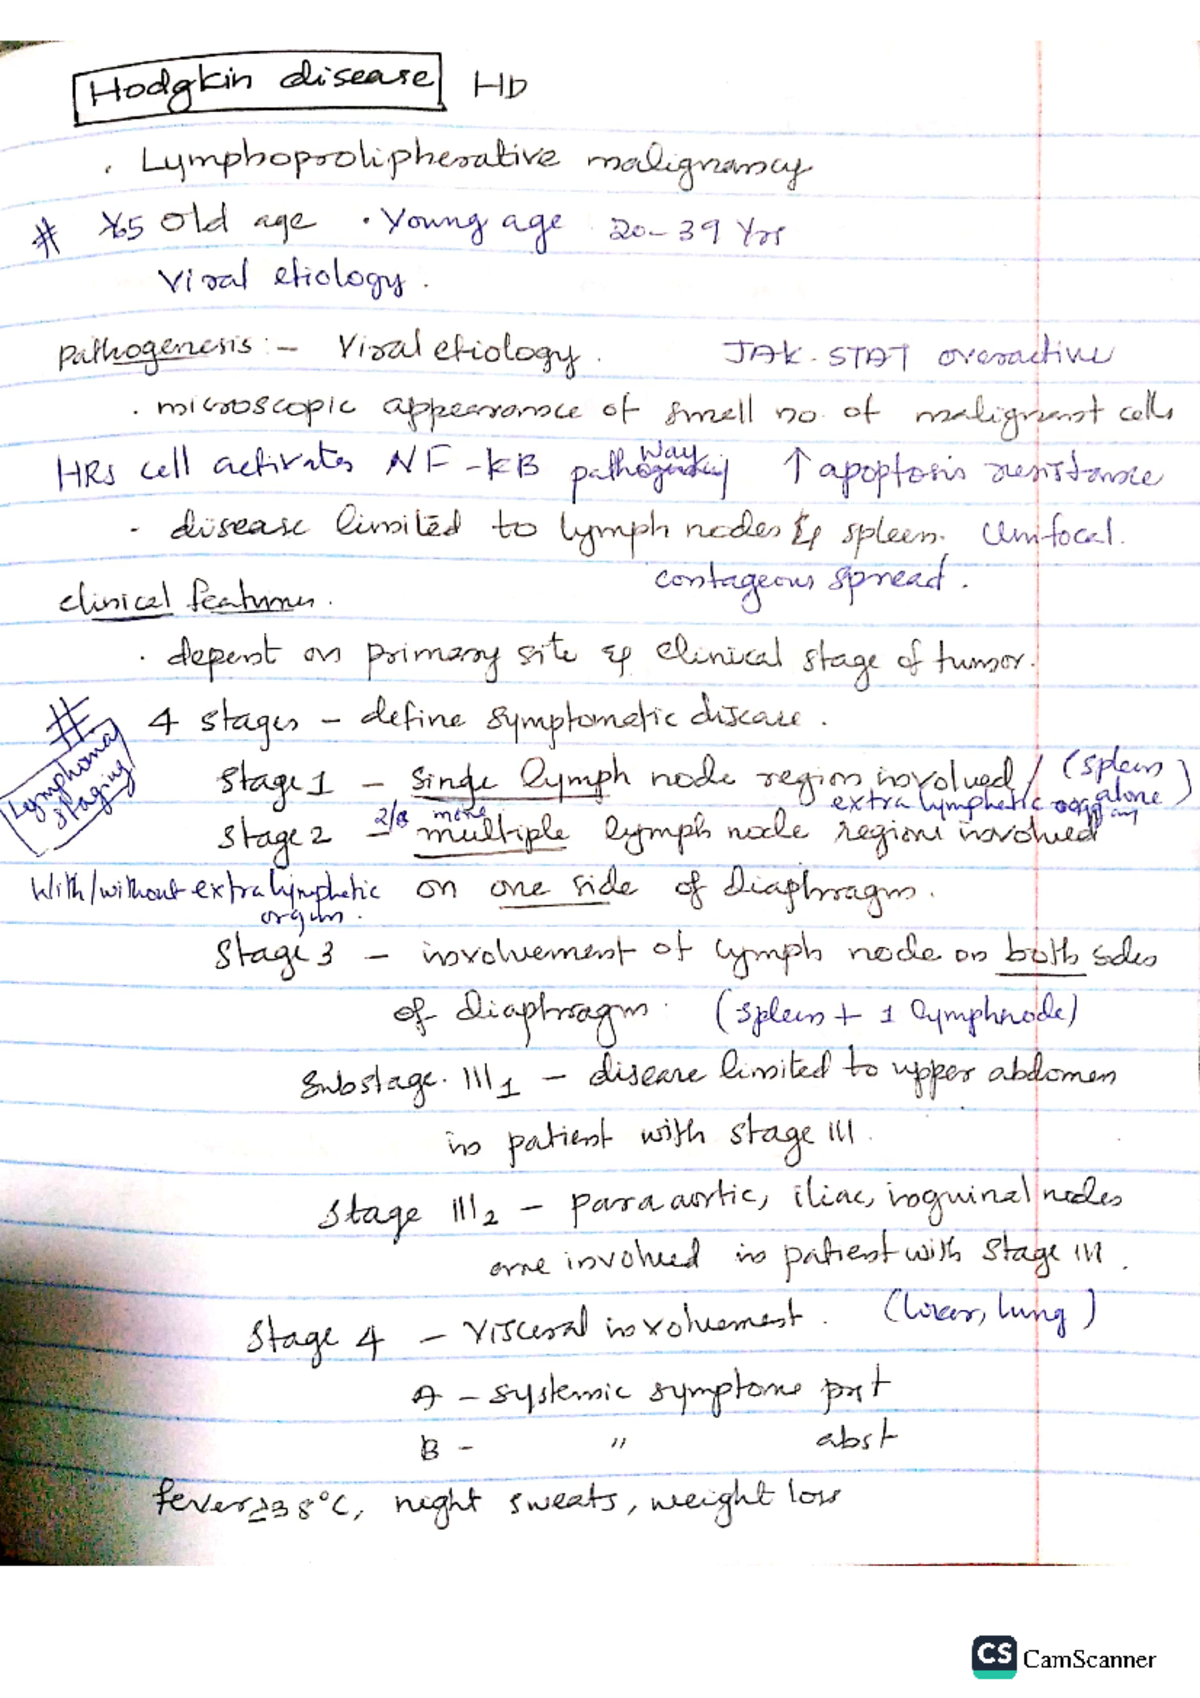 Hodgkin disease HD
. Lymphoprolipherative malignancy
# >65 Old age . Young age 20-39 Yrs
Viral etiology.
Pathogenesis :- Viral etiology. JAK-STAT overactive
. microscopic appearance of small no. of malignant cells
HRS cell activates NF-KB pathway ↑ apoptosis resistance
. disease limited to lymph nodes & spleen. Unifocal.
contageous spread.
clinical features.
. depent on primary site & clinical stage of tumor.
# 4 stages - define symptomatic disease.
Lymphoma staging
Stage 1 - Single lymph node region involved / (spleen alone)
extra lymphetic organ
2/8 more
Stage 2 - multiple lymph node regions involved
With/without extra lymphetic organ. on one side of diaphragm.
Stage 3 - involvement of lymph node on both sides
of diaphragm: (spleen + 1 lymphnode)
Substage. III1 - disease limited to upper abdomen
in patient with stage III.
Stage III2 - para aortic, iliac, inguinal nodes
are involved in patient with Stage III.
Stage 4 - visceral involvement. (liver, lung)
A - systemic symptoms prst
B - " abst
fever ≥38°C, night sweats, weight loss
CS CamScanner